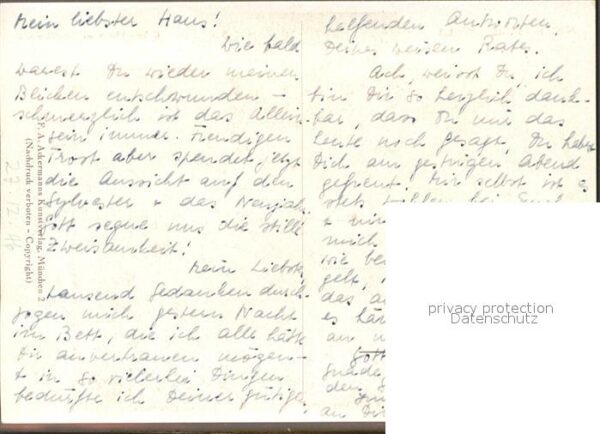 Mein liebster Hans!
Wie bald
warest Du wieder meinen
Blicken entschwunden –
schmerzlich ist das Allein
sein immer. Freudigen
Trost aber spendet jetzt
die Aussicht auf den
Sylvester + das Neujahr
Gott segne uns die stille
Zweisamkeit!
Mein Liebster
tausend Gedanken durch-
zogen mich gestern Nacht
im Bett, die ich alle hätte
Dir anvertrauen mögen –
+ in so vielerlei Dingen
bedürfte ich Deiner gütigen
helfenden Antworten,
Deines weisen Rates.
Ach, weisst Du, ich
bin Dir so herzlich dank-
bar, dass Du mir das
heute noch gesagt, Du habest
Dich am gestrigen Abend
gefreut. Mir selbst ist
stets
+
mich
wie
das
es
an
Gott
Gnade
den
an Dir
F. A. Ackermanns Kunstverlag, München 2
(Nachdruck verboten - Copyright)
privacy protection
Datenschutz